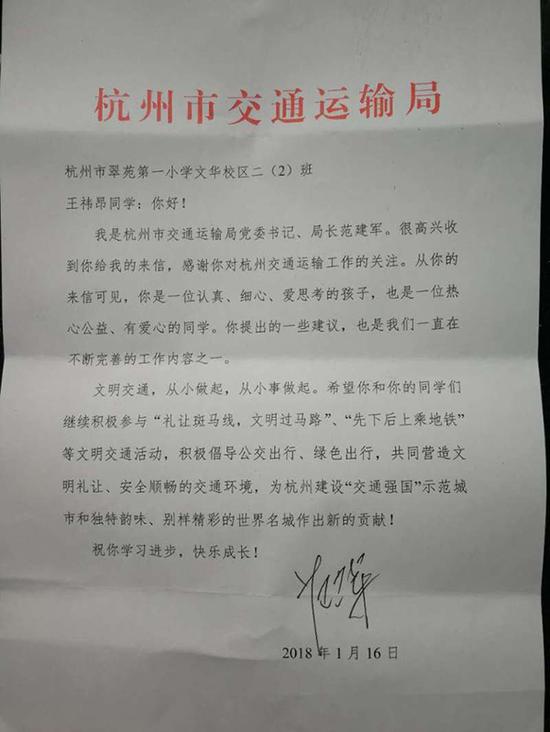 杭州市交通运输局
杭州市翠苑第一小学文华校区二（2）班
王祎昂同学：你好！
我是杭州市交通运输局党委书记、局长范建军。很高兴收
到你给我的来信，感谢你对杭州交通运输工作的关注。从你的
来信可见，你是一位认真、细心、爱思考的孩子，也是一位热
心公益、有爱心的同学。你提出的一些建议，也是我们一直在
不断完善的工作内容之一。
文明交通，从小做起，从小事做起。希望你和你的同学们
继续积极参与“礼让斑马线，文明过马路”、“先下后上乘地铁”
等文明交通活动，积极倡导公交出行、绿色出行，共同营造文
明礼让、安全顺畅的交通环境，为杭州建设“交通强国”示范城
市和独特韵味、别样精彩的世界名城作出新的贡献！
祝你学习进步，快乐成长！
2018 年 1 月 16 日